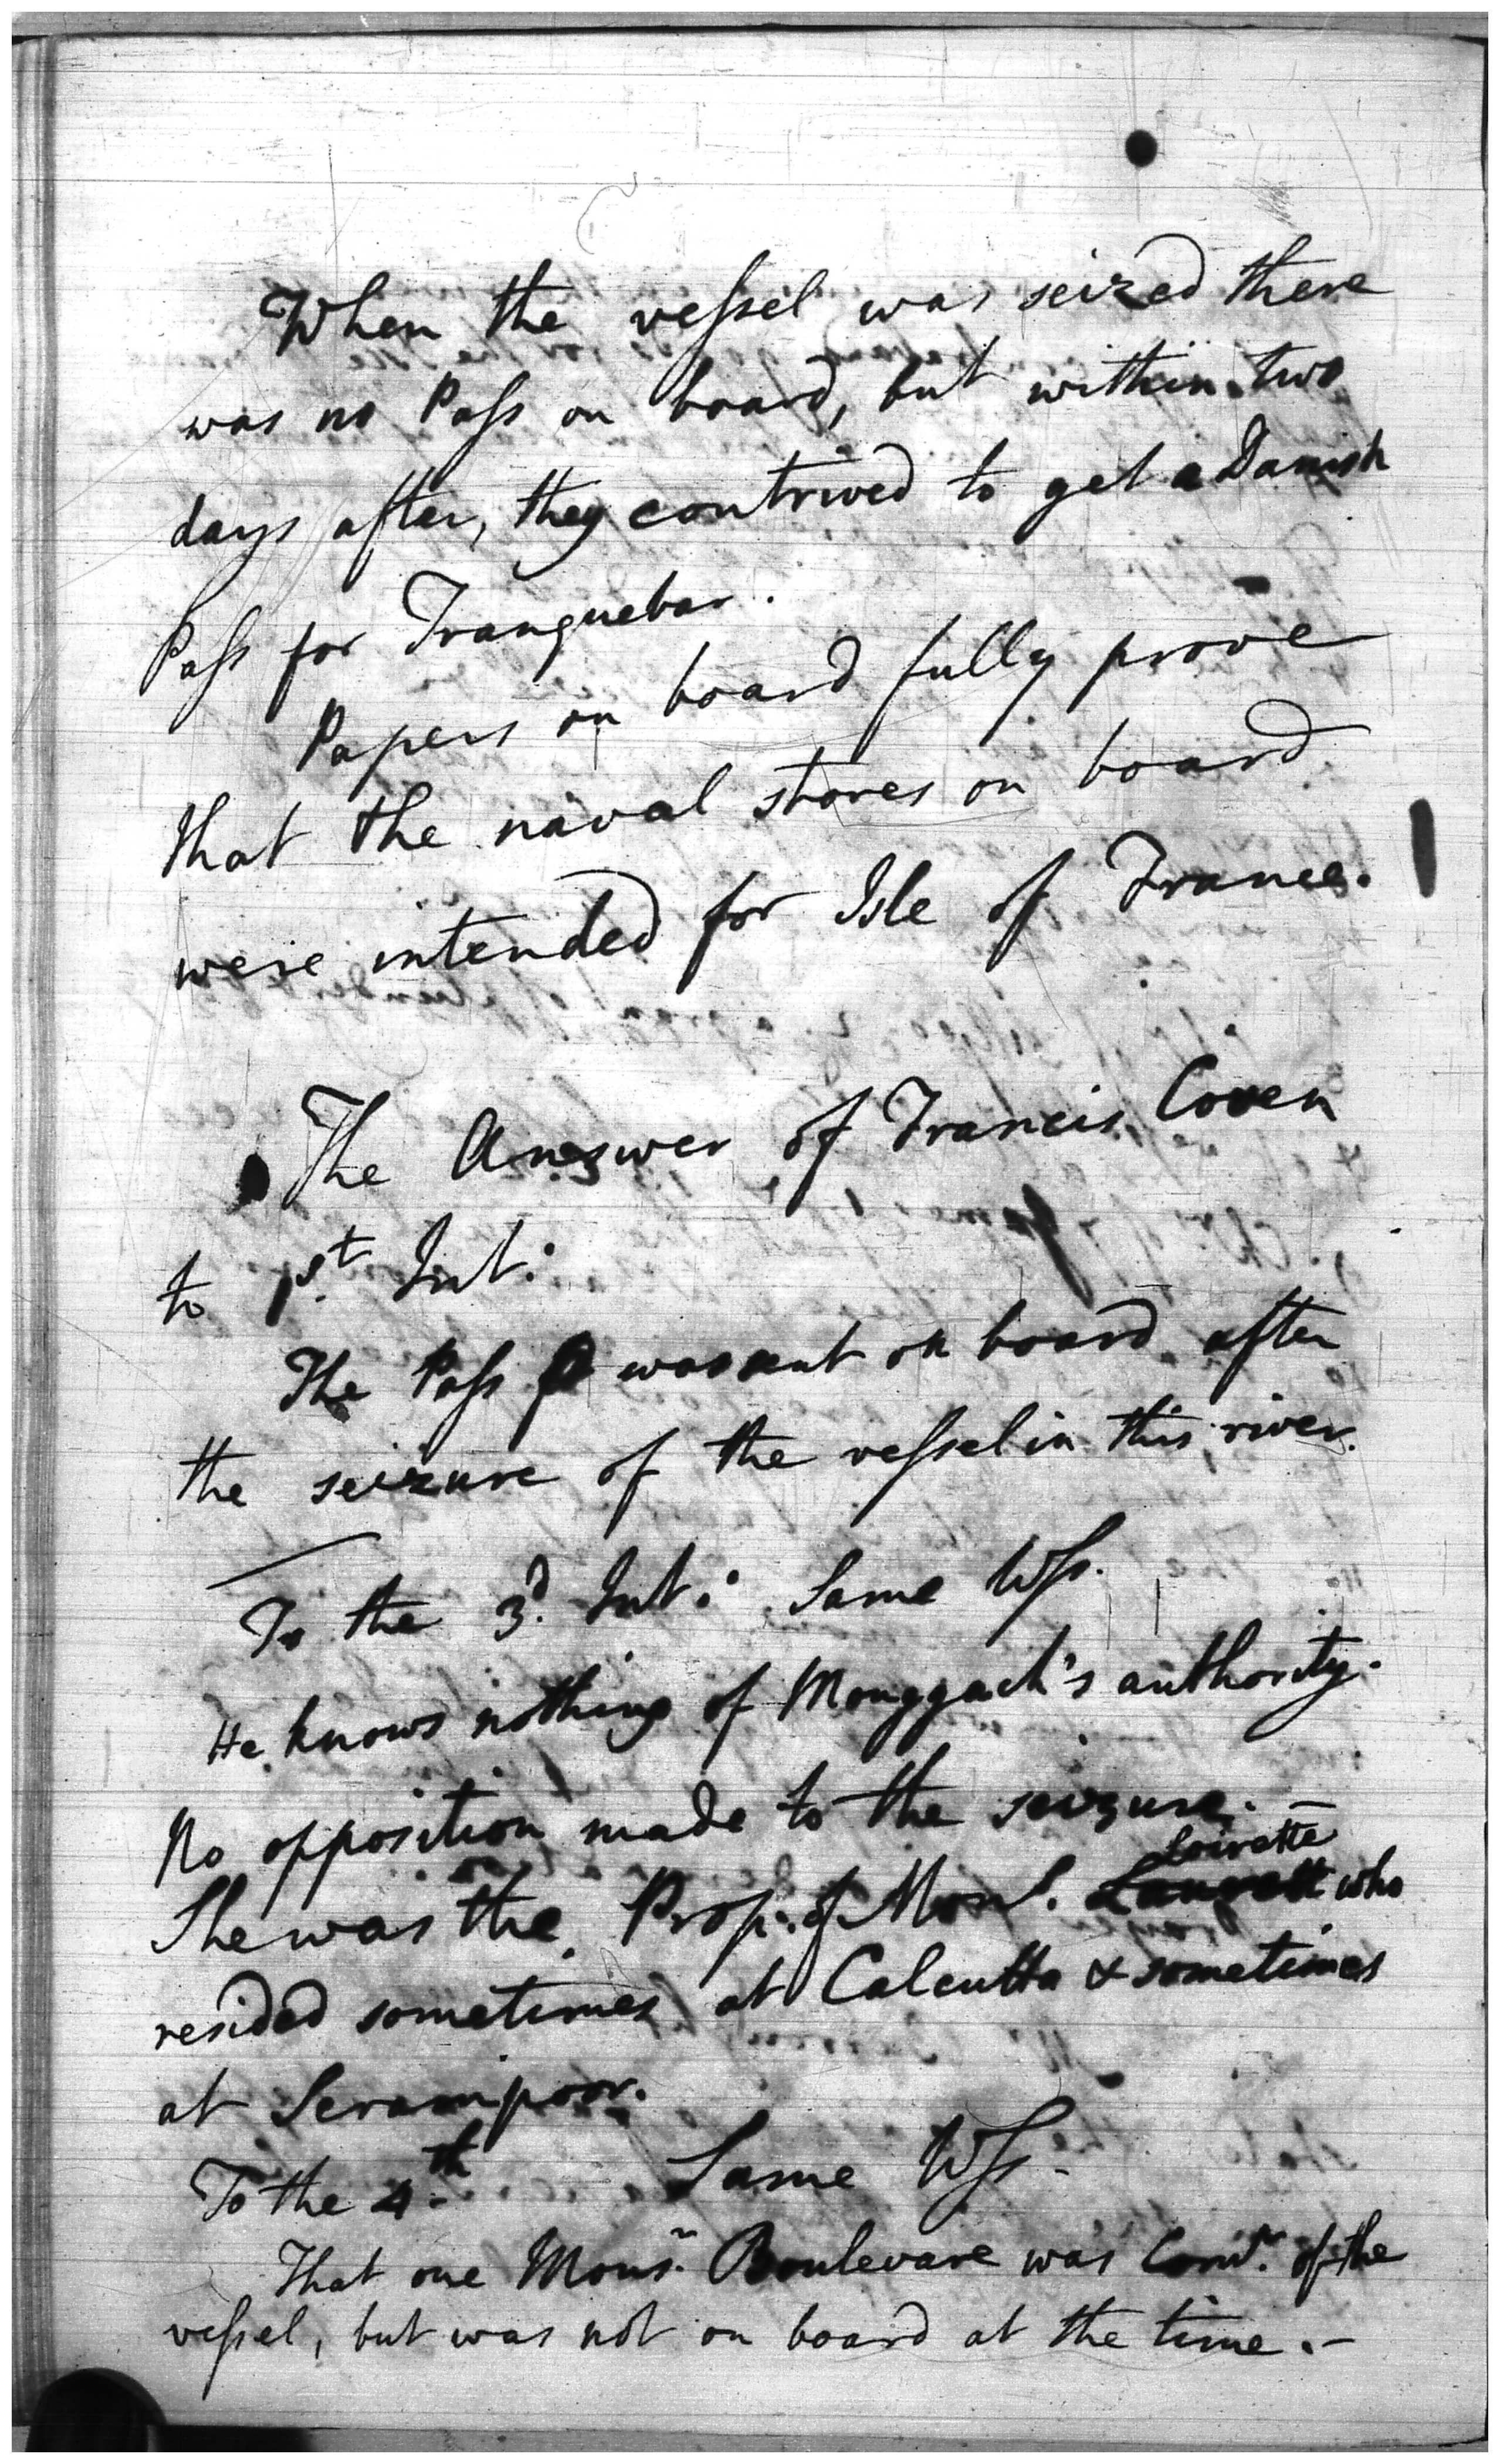 When the vessel was seized there
was no Pass on board, but within two
days after, they contrived to get a Danish
Pass for Tranquebar.
Papers on board fully prove
that the naval stores on board
were intended for Isle of France.
The Answer of Francis Coven
to 1st. Int:
The Pass was sent on board after
the seizure of the vessel in this river.
To the 3d. Int: Same Wss.
He knows nothing of Mouggach's authority.
No opposition made to the seizure. —
She was the Prop: of Monsr. Loirette who
resided sometimes at Calcutta & sometimes
at Serampoor.
To the 4th Same Wss.
That one Monsr. Boulevare was Comr. of the
vessel, but was not on board at the time. —